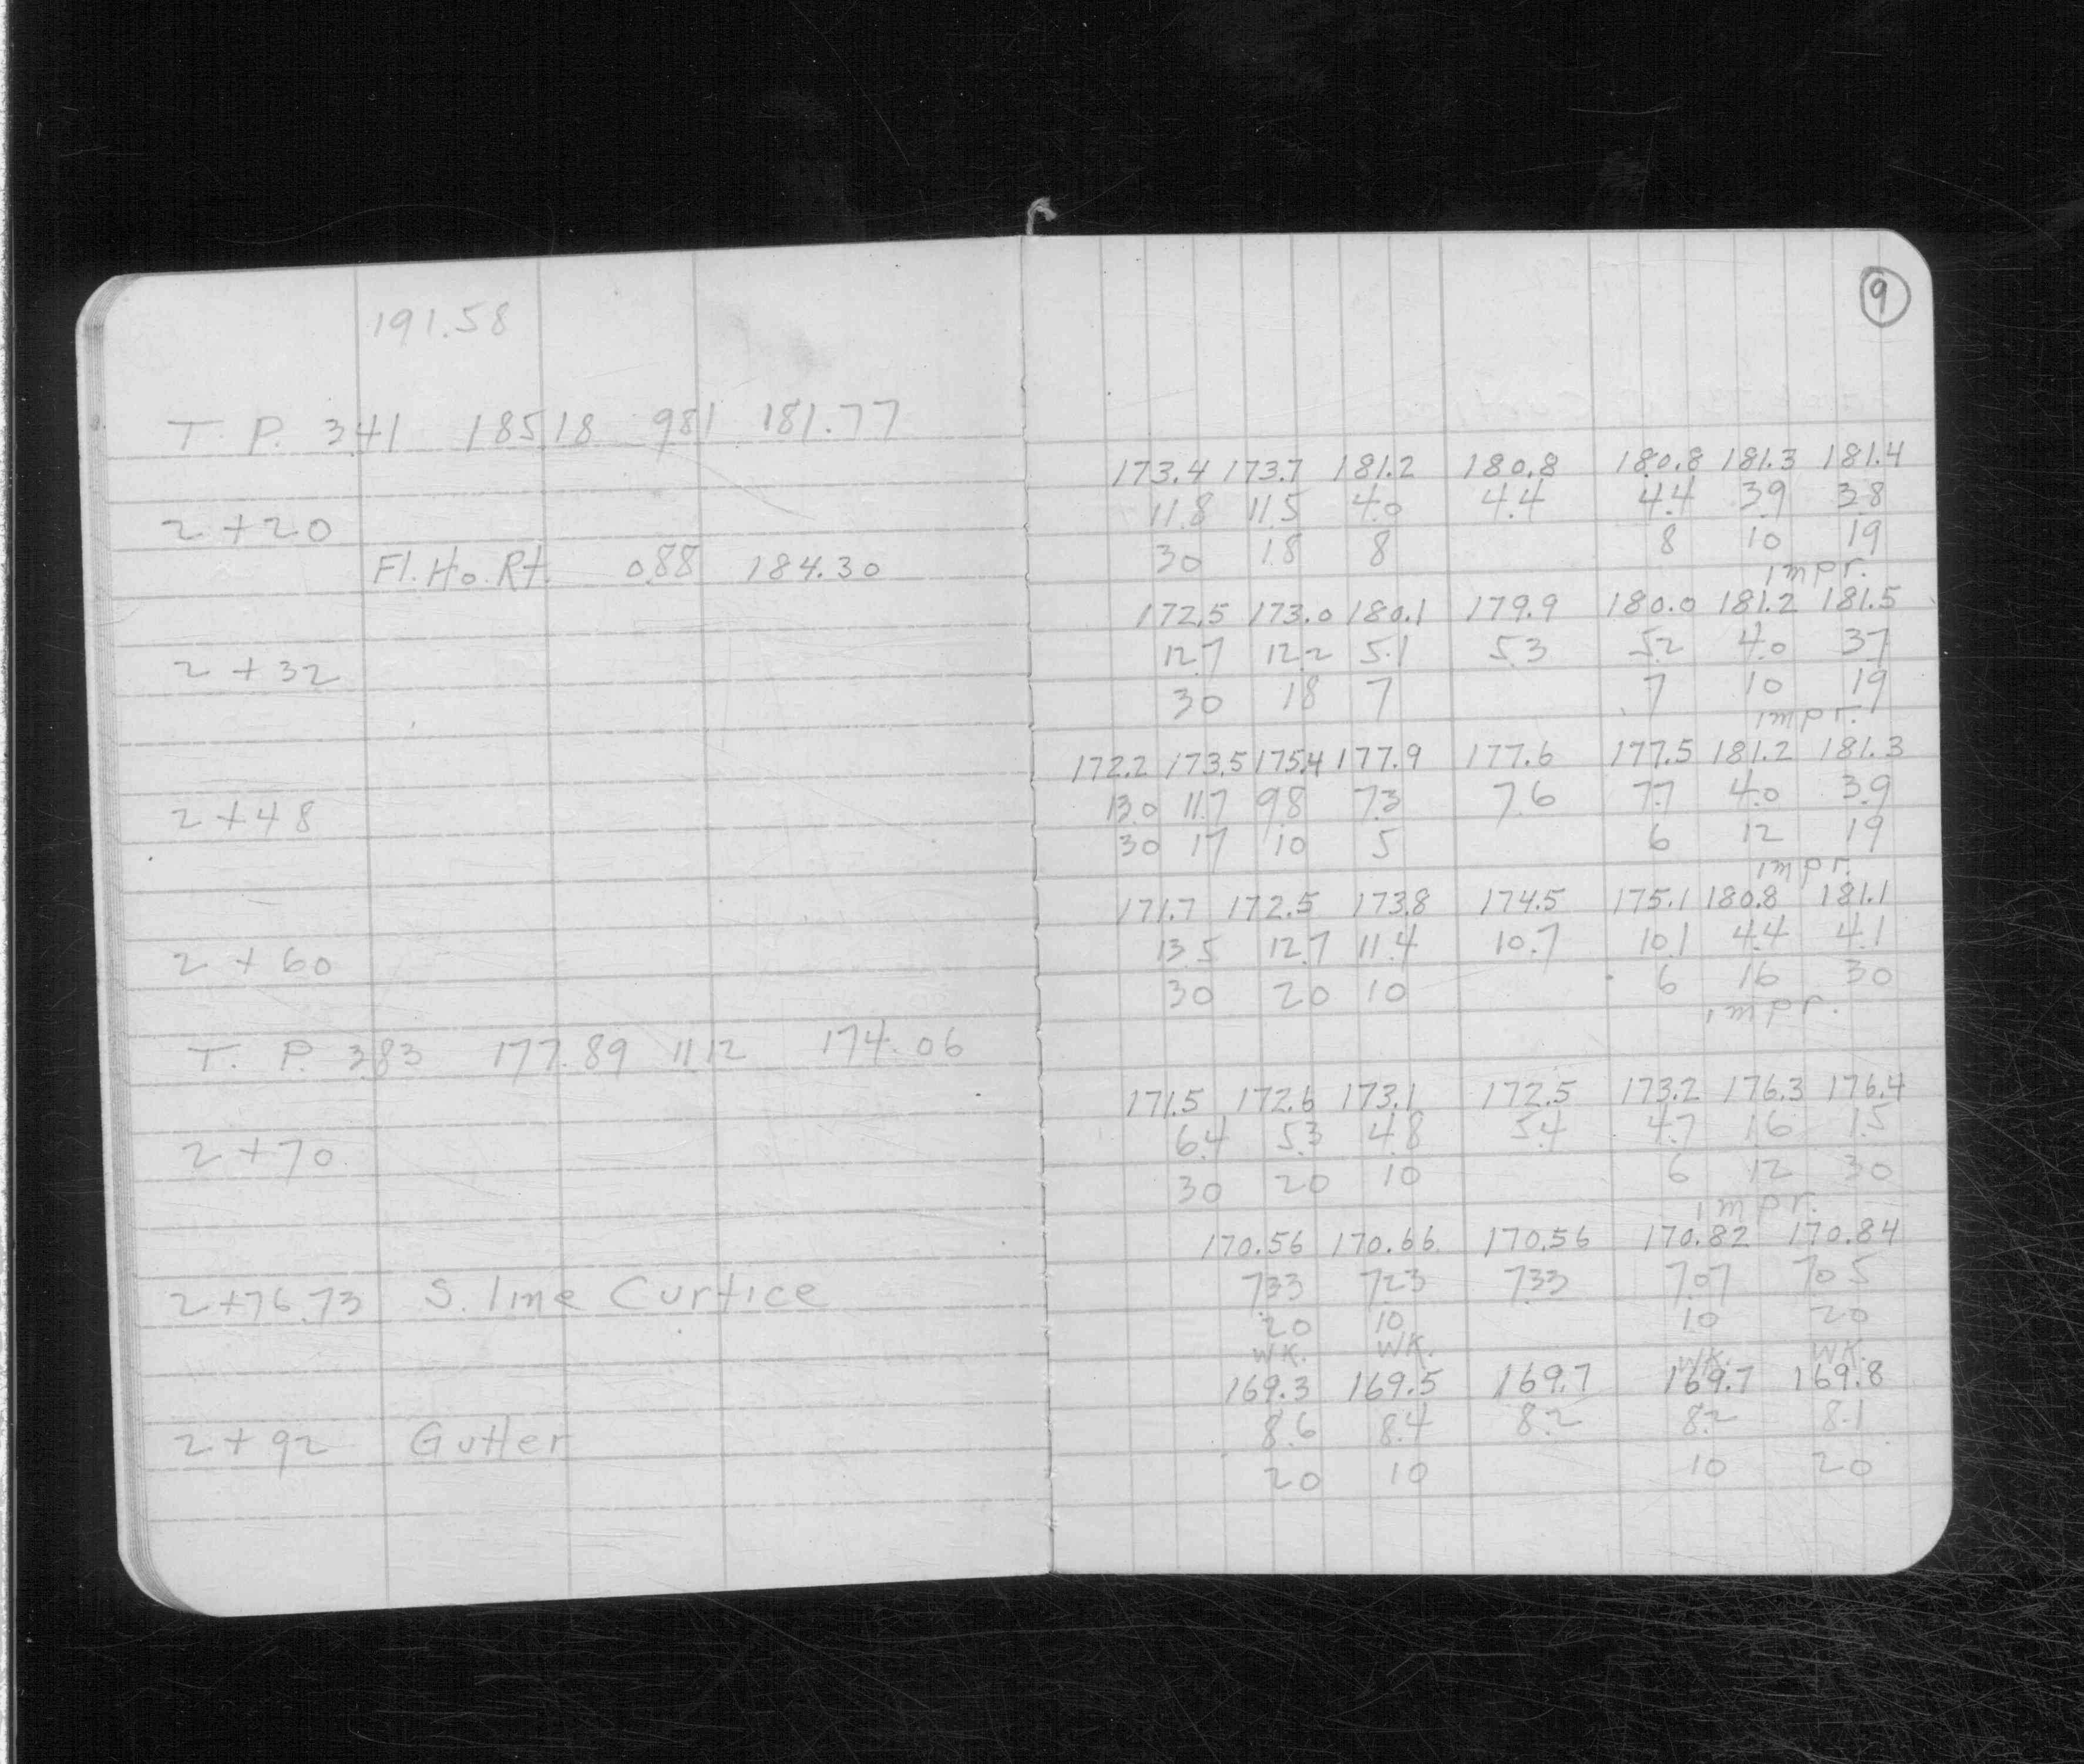 191.58
T. P. 3.41 185.18 9.81 181.77
2+20
Fl. Ho. Rt. 0.88 184.30
2+32
2+48
2+60
T. P. 3.83 177.89 11.12 174.06
2+70
2+76.73 S. line Curtice
2+92 Gutter
9
173.4 173.7 181.2 180.8 180.8 181.3 181.4
11.8 11.5 4.0 4.4 4.4 3.9 3.8
30 18 8 8 10 19
impr.
172.5 173.0 180.1 179.9 180.0 181.2 181.5
12.7 12.2 5.1 5.3 5.2 4.0 3.7
30 18 7 7 10 19
impr.
172.2 173.5 175.4 177.9 177.6 177.5 181.2 181.3
13.0 11.7 9.8 7.3 7.6 7.7 4.0 3.9
30 17 10 5 6 12 19
impr.
171.7 172.5 173.8 174.5 175.1 180.8 181.1
13.5 12.7 11.4 10.7 10.1 4.4 4.1
30 20 10 6 16 30
impr.
171.5 172.6 173.1 172.5 173.2 176.3 176.4
6.4 5.3 4.8 5.4 4.7 1.6 1.5
30 20 10 6 12 30
impr.
170.56 170.66 170.56 170.82 170.84
7.33 7.23 7.33 7.07 7.05
20 10 10 20
WK. WK. WK. WK.
169.3 169.5 169.7 169.7 169.8
8.6 8.4 8.2 8.2 8.1
20 10 10 20